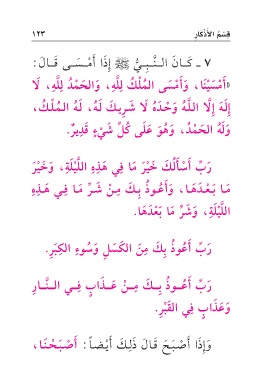 قِسْمُ الأَذْكَارِ ١٢٣
٧ ـ كَـانَ الـنَّـبِـيُّ ﷺ إِذَا أَمْـسَـى قَـالَ:
«أَمْسَيْنَا، وَأَمْسَى المُلْكُ لِلَّهِ، وَالحَمْدُ لِلَّهِ، لَا
إِلَهَ إِلَّا اللَّهُ وَحْدَهُ لَا شَرِيكَ لَهُ، لَهُ المُلْكُ،
وَلَهُ الحَمْدُ، وَهُوَ عَلَى كُلِّ شَيْءٍ قَدِيرٌ.
رَبِّ أَسْأَلُكَ خَيْرَ مَا فِي هَذِهِ اللَّيْلَةِ، وَخَيْرَ
مَـا بَـعْـدَهَـا، وَأَعُـوذُ بِـكَ مِـنْ شَـرِّ مَـا فِـي هَـذِهِ
اللَّيْلَةِ، وَشَرِّ مَا بَعْدَهَا.
رَبِّ أَعُوذُ بِكَ مِنَ الكَسَلِ وَسُوءِ الكِبَرِ.
رَبِّ أَعُــوذُ بِــكَ مِــنْ عَــذَابٍ فِــي الــنَّــارِ
وَعَذَابٍ فِي القَبْرِ.
وَإِذَا أَصْبَحَ قَالَ ذَلِكَ أَيْضاً: أَصْبَحْنَا،